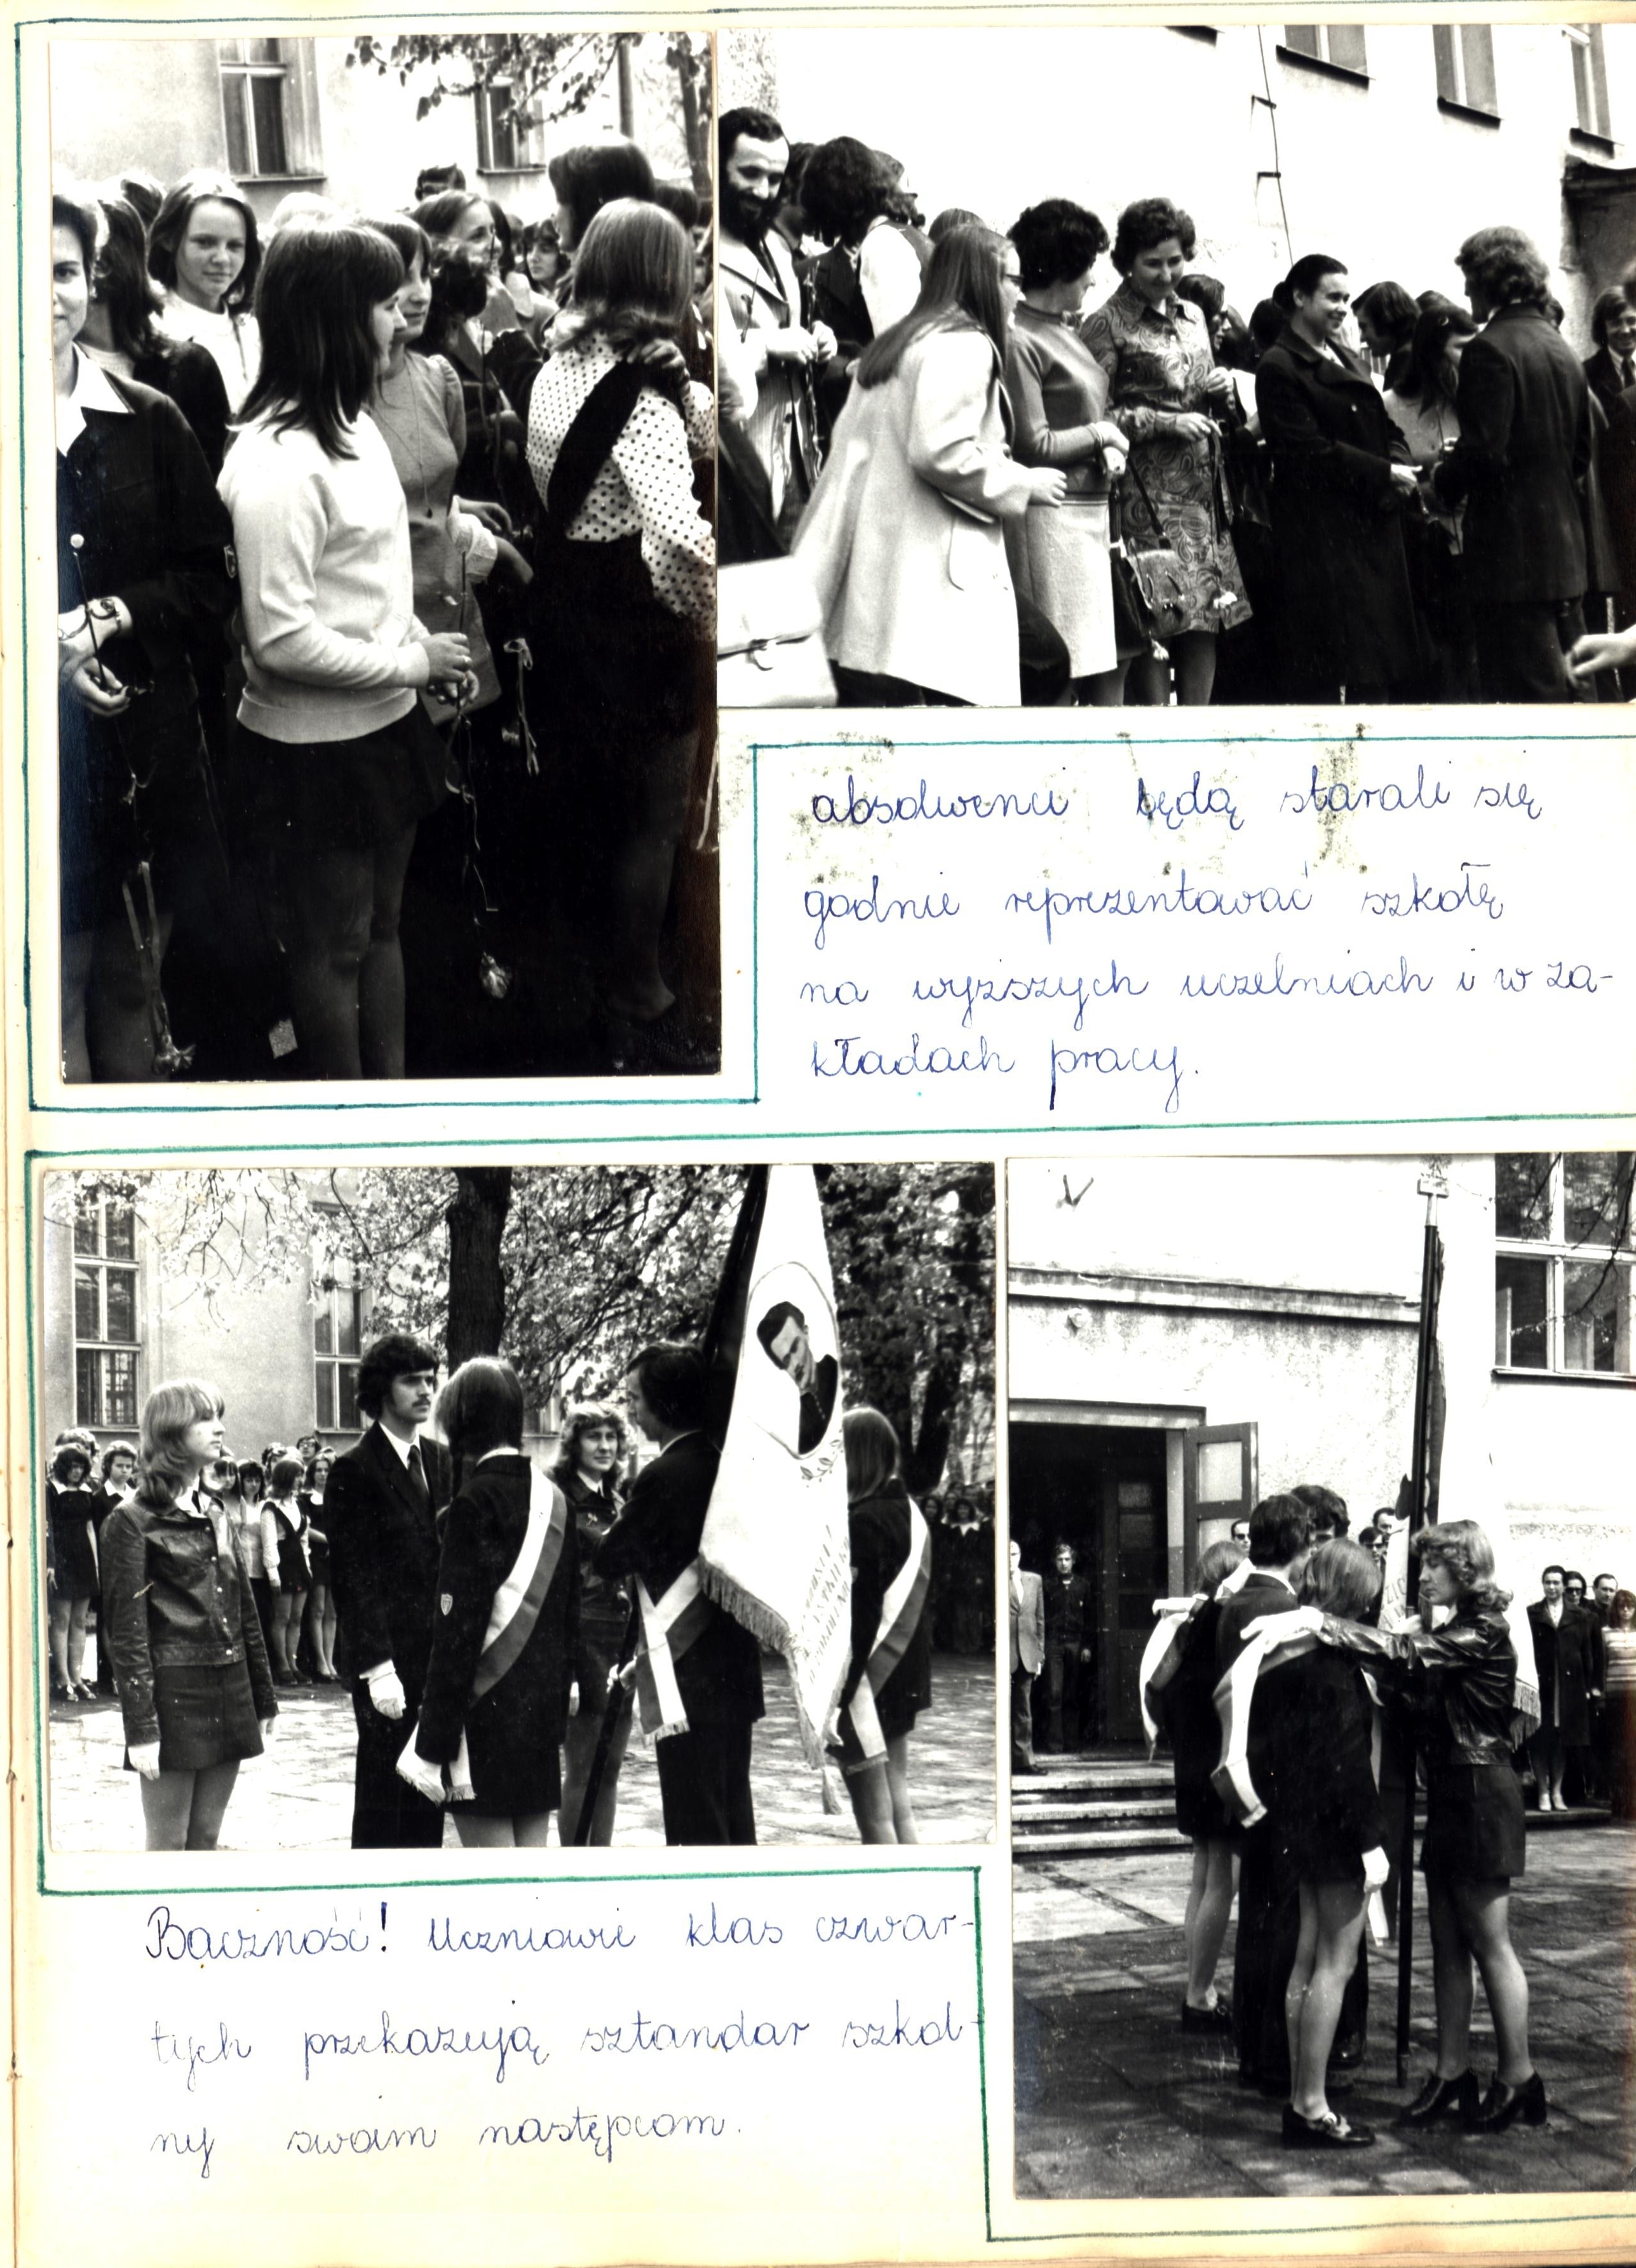 absolwenci będą starali się
godnie reprezentować szkołę
na wyższych uczelniach i w za-
kładach pracy.
Baczność! Uczniowie klas czwar-
tych przekazują sztandar szkol-
ny swoim następcom.